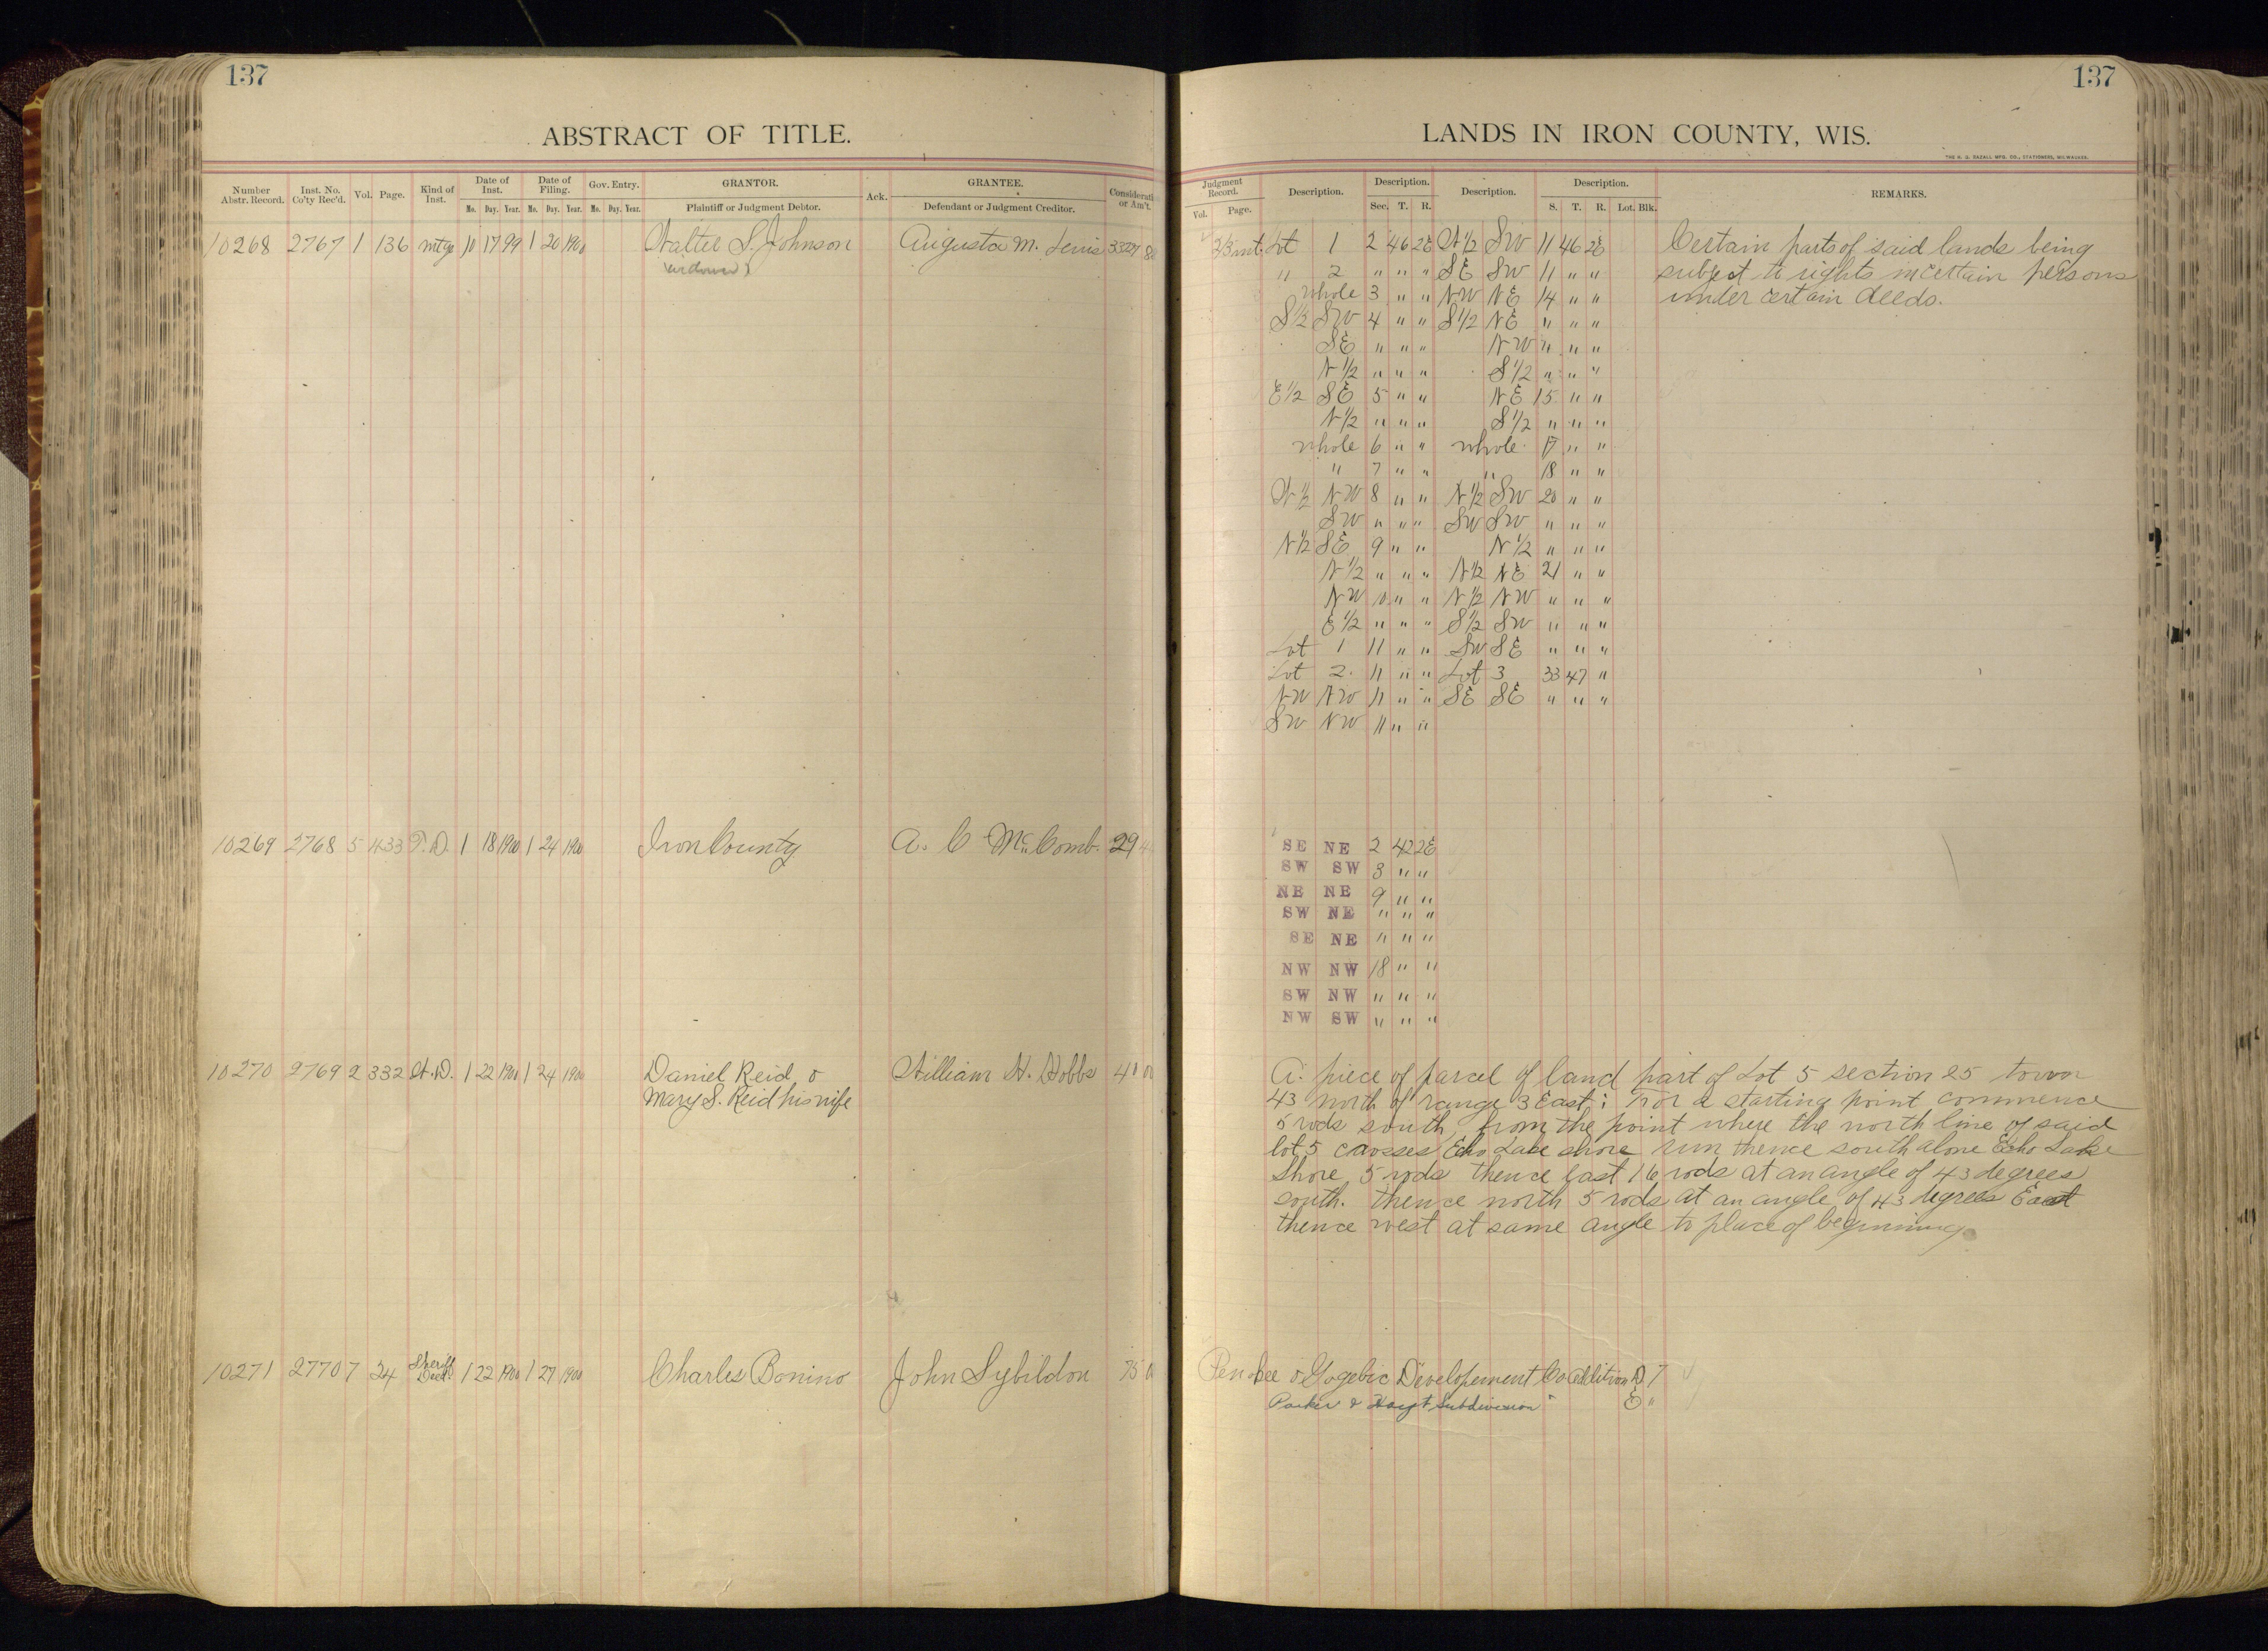 137
ABSTRACT OF TITLE.
Number Abstr. Record. Inst. No. Co'ty Rec'd. Vol. Page. Kind of Inst. Date of Inst. Date of Filing. Gov. Entry. GRANTOR. Ack. GRANTEE. Considerati or Am't.
Mo. Day. Year. Mo. Day. Year. Mo. Day. Year. Plaintiff or Judgment Debtor. Defendant or Judgment Creditor.
10268 2767 1 136 mtge 10 17 99 1 20 1900 Walter S. Johnson Augusta M. Lewis 33227
(widower)
10269 2768 5 433 T.D. 1 18 1900 1 24 1900 Iron County A. C McComb. 29
10270 2769 2 332 W.D. 1 22 1900 1 24 1900 Daniel Reid & William H. Hobbs 40 00
Mary S. Reid his wife
10271 2770 7 34 Sheriff Deed 1 22 1900 1 27 1900 Charles Bonino John Sybildon 75
137
LANDS IN IRON COUNTY, WIS.
THE H. G. RAZALL MFG. CO., STATIONERS, MILWAUKEE.
Judgment Record. Description. Description. Description. Description. REMARKS.
Vol. Page. Sec. T. R. S. T. R. Lot. Blk.
2/3 int Lot 1 2 46 2E W 1/2 SW 11 46 2E Certain parts of said lands being
" 2 " " " SE SW 11 " " subject to rights in certain persons
whole 3 " " NW NE 14 " " under certain deeds.
S 1/2 SW 4 " " S 1/2 NE " " "
SE " " " NW " " "
N 1/2 " " " S 1/2 " " "
E 1/2 SE 5 " " NE 15 " "
N 1/2 " " " S 1/2 " " "
whole 6 " " whole 17 " "
" 7 " " " 18 " "
W 1/2 NW 8 " " N 1/2 SW 20 " "
SW " " " SW SW " " "
N 1/2 SE 9 " " N 1/2 " " "
N 1/2 " " " N 1/2 NE 21 " "
NW 10 " " N 1/2 NW " " "
E 1/2 " " " S 1/2 SW " " "
Lot 1 11 " " SW SE " " "
Lot 2. 11 " " Lot 3 33 47 "
NW NW 11 " " SE SE " " "
SW NW 11 " "
SE NE 2 42 2E
SW SW 3 " "
NE NE 9 " "
SW NE " " "
SE NE " " "
NW NW 18 " "
SW NW " " "
NW SW " " "
A. piece of parcel of land part of Lot 5 section 25 town
43 north of range 3 East; For a starting point commence
5 rods south from the point where the north line of said
lot 5 crosses Echo Lake shore run thence south alone Echo Lake
Shore 5 rods thence east 16 rods at an angle of 43 degrees
south. thence north 5 rods at an angle of 43 degrees East
thence west at same angle to place of beginning
Penokee & Gogebic Developement Co addition D 7
Parker & Hoyt Subdivision " E "